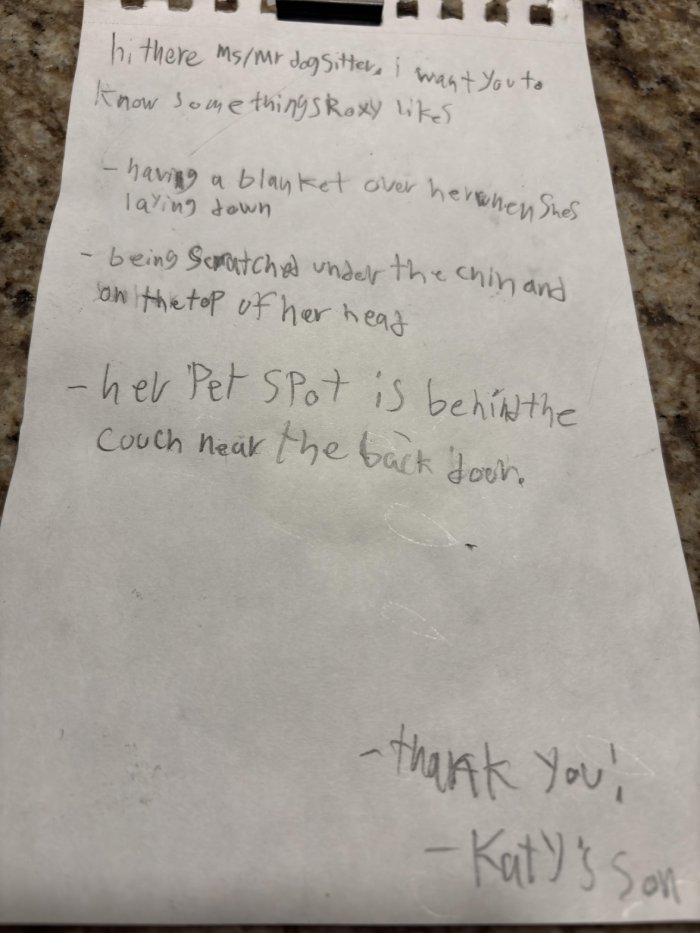 hi there Ms/Mr dogsitter, i want you to
know some things Roxy likes
- having a blanket over her when shes
laying down
- being scratched under the chin and
on the top of her head
- her Pet SPot is behind the
couch near the back door.
- thank you!
- Katy's son